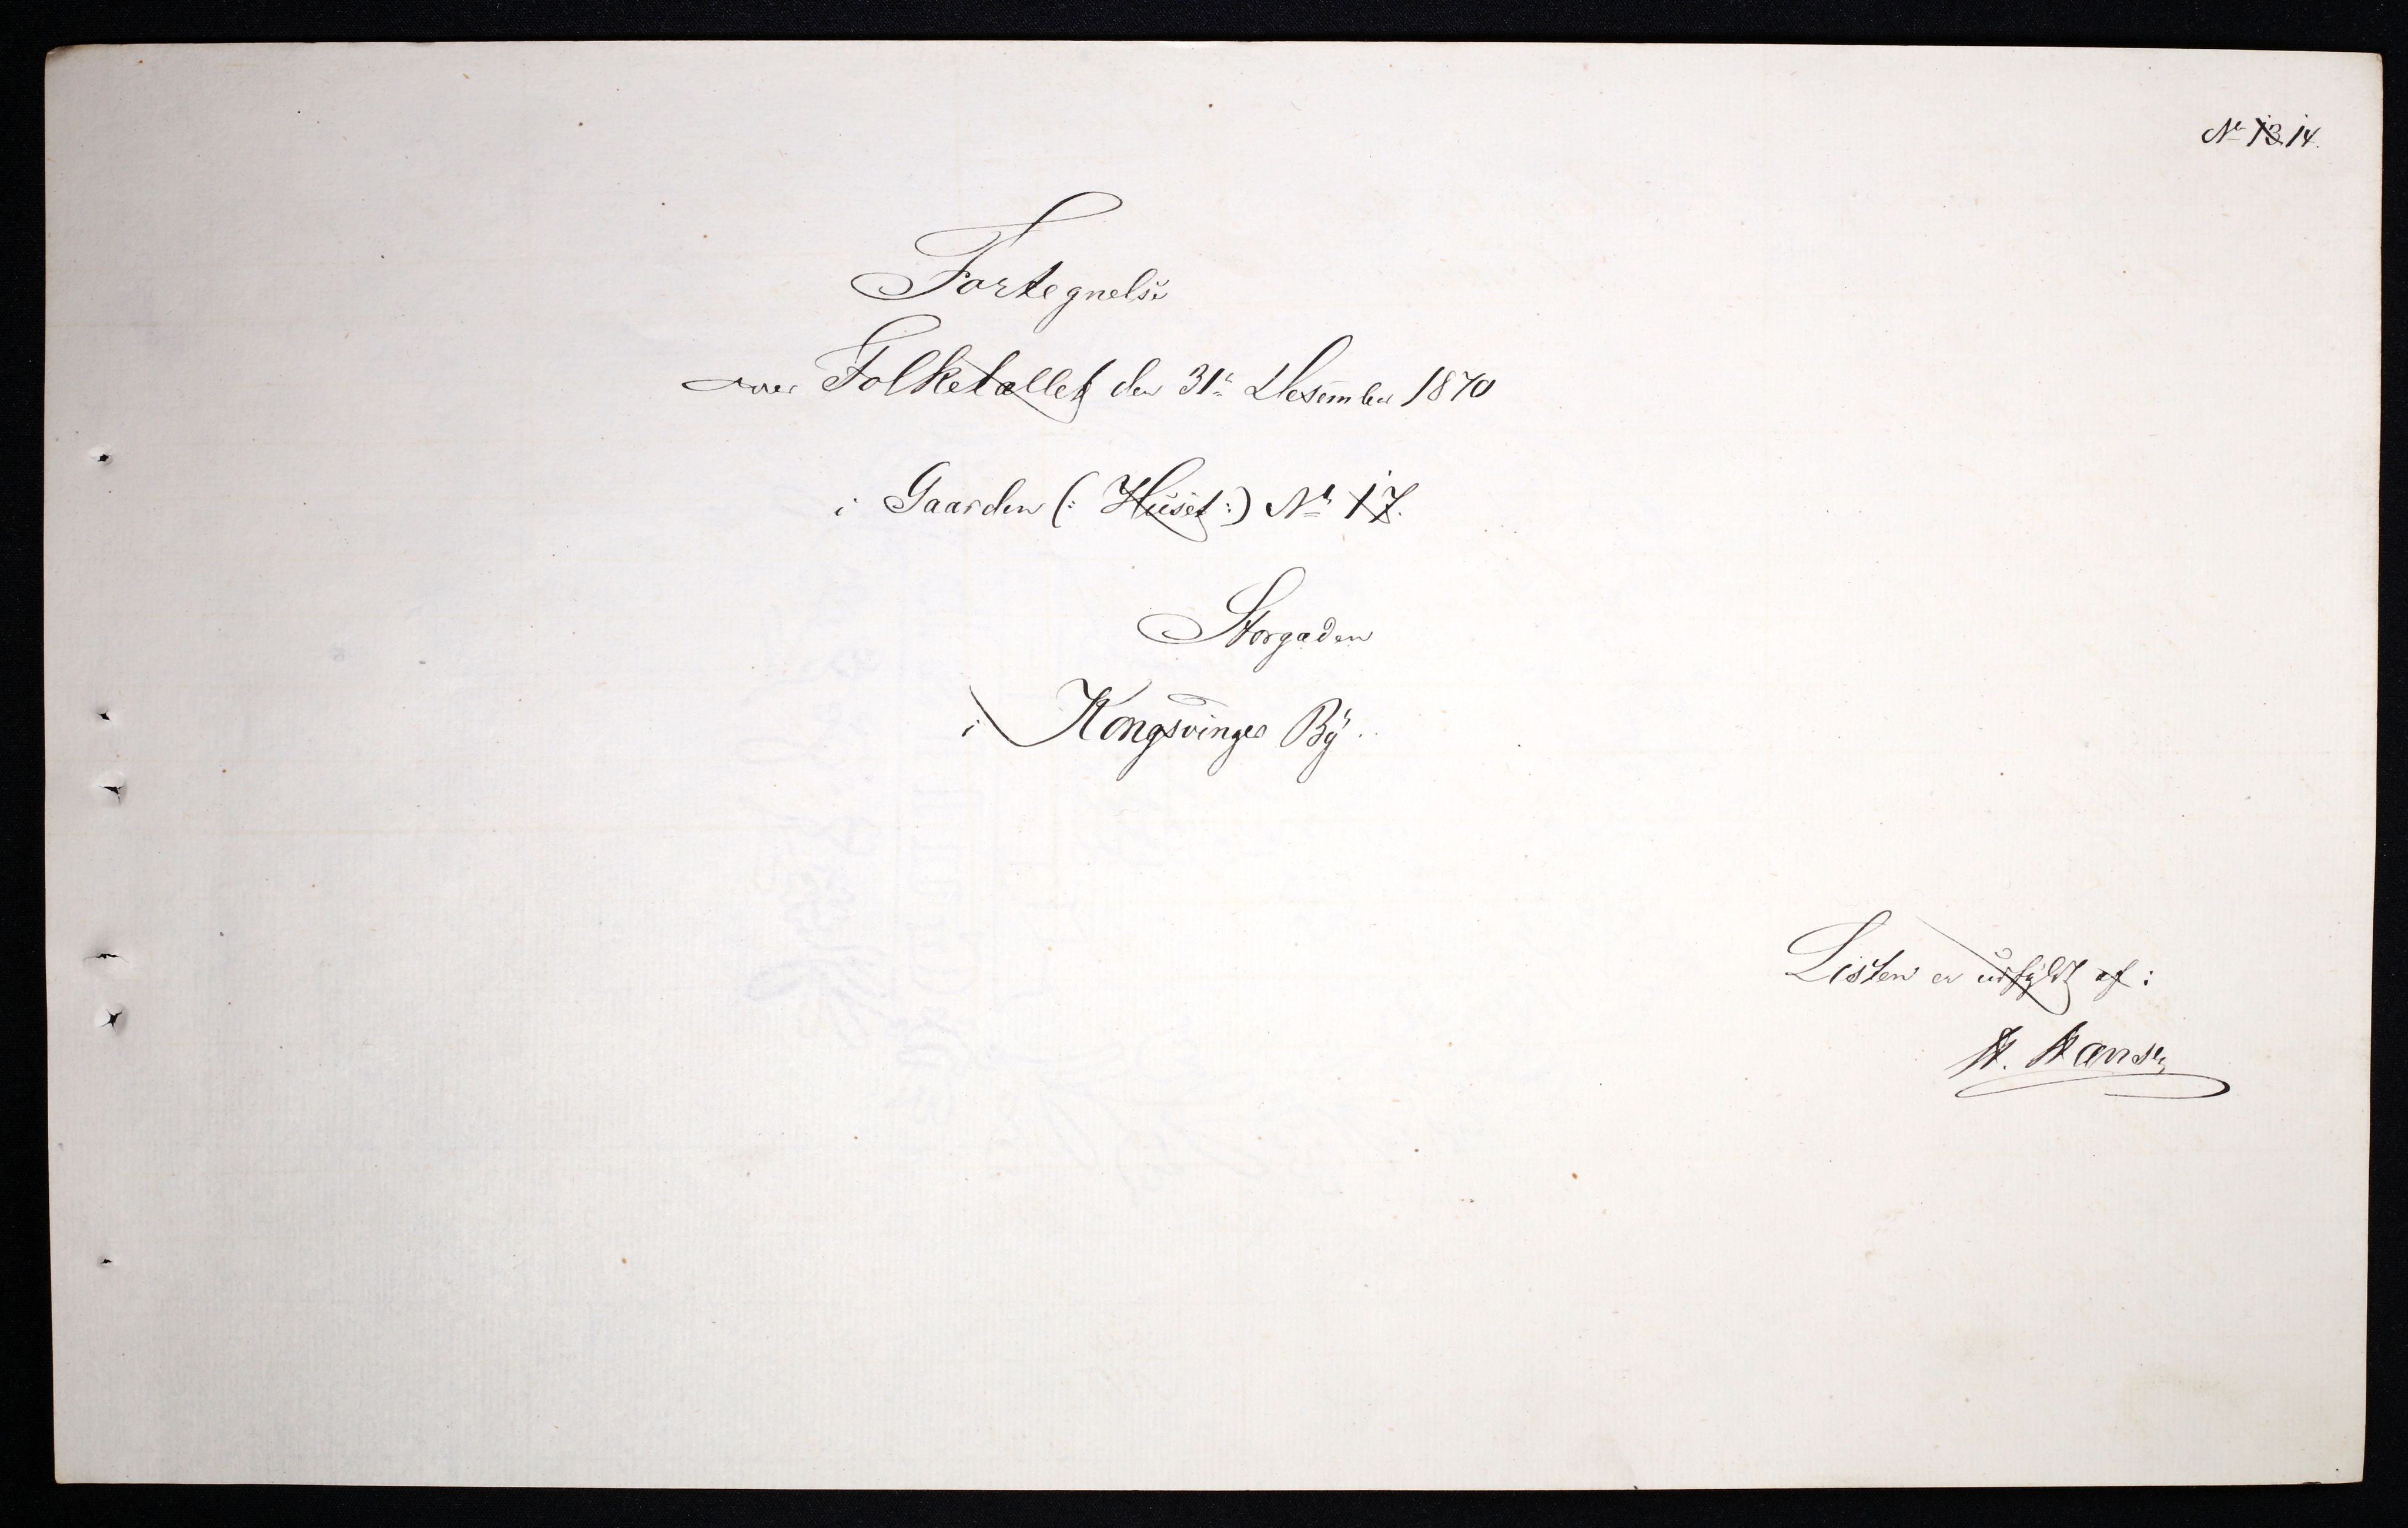 No 13 14.
Fortegnelse
over Folketallet den 31te Desember 1870
i Gaarden (: Huset :) No 17.
Storgaden
i Kongsvinger By.
Listen er udfyldt af:
H. Hansen